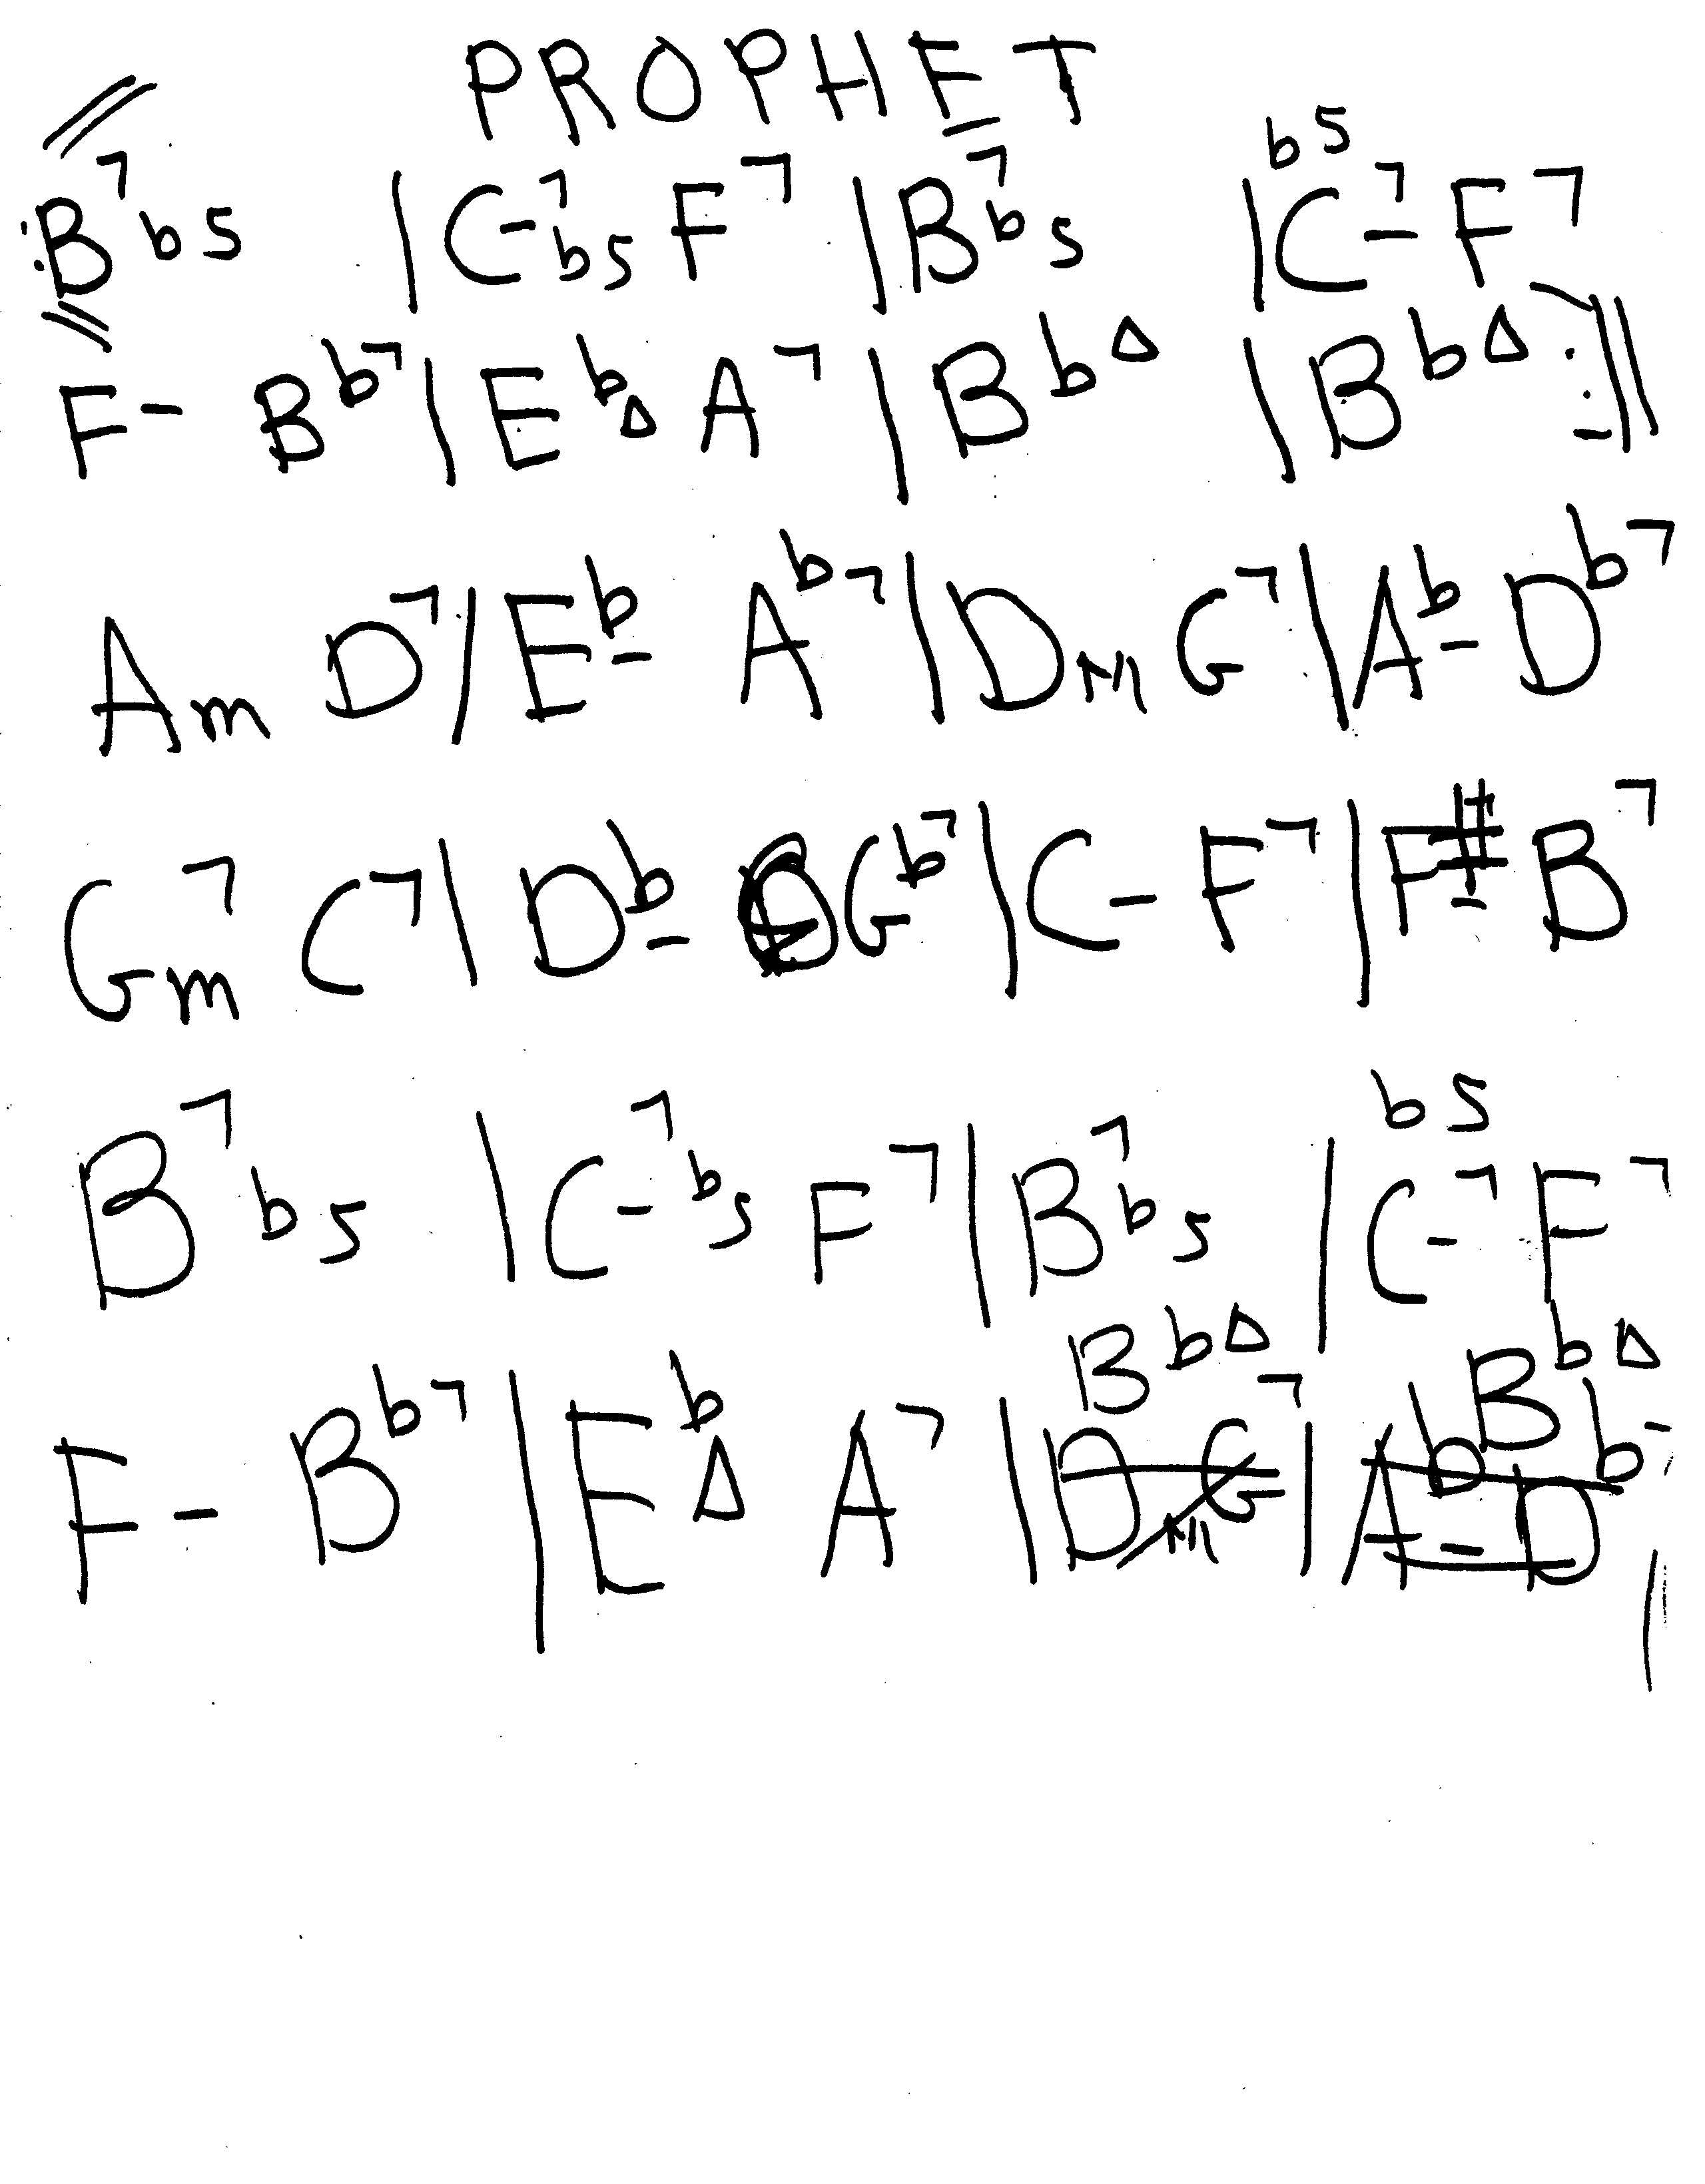 PROPHET
:B7b5 | C-7b5 F7 | B7b5 | C-7b5 F7
F- Bb7 | EbΔ A7 | BbΔ | BbΔ :||
Am D7 | Eb- Ab7 | Dm G7 | Ab- Db7
Gm7 C7 | Db- Gb7 | C- F7 | F#- B7
B7b5 | C-7b5 F7 | B7b5 | C-7b5 F7
F- Bb7 | EbΔ A7 | BbΔ | BbΔ |